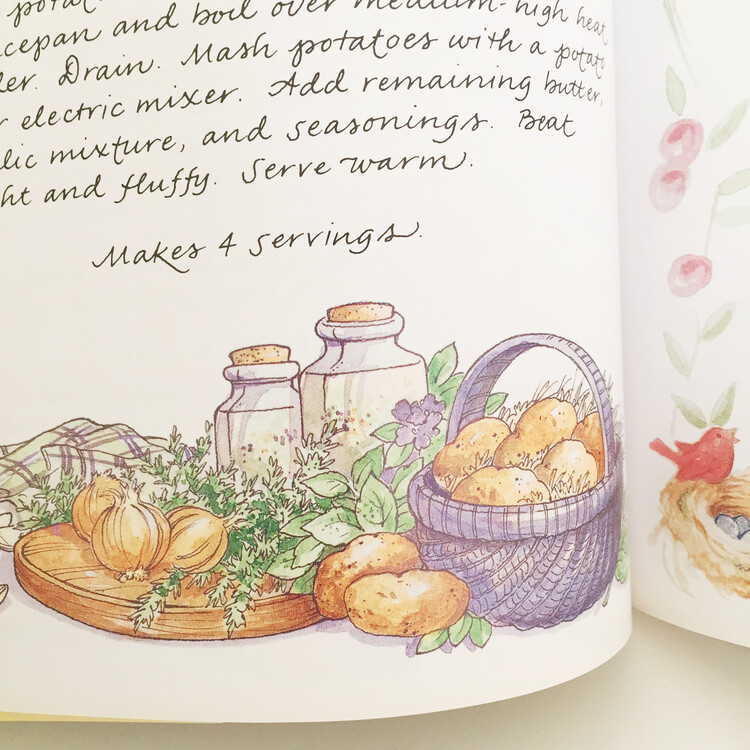 potat
cepan and boil over medium-high heat
er. Drain. Mash potatoes with a potato
r electric mixer. Add remaining butter,
lic mixture, and seasonings. Beat
ht and fluffy. Serve warm.
Makes 4 servings.